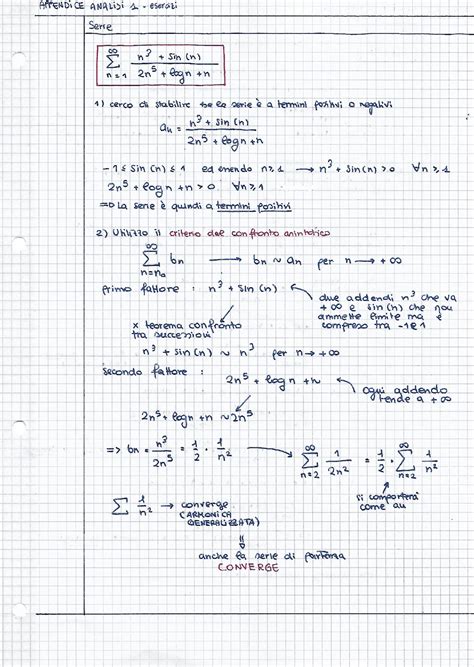 APPENDICE ANALISI 1 - esercizi
Serie
∞
∑ n³ + sin(n) / 2n⁵ + logn + n
n=1
1) cerco di stabilire se la serie è a termini positivi o negativi
an = n³ + sin(n) / 2n⁵ + logn + n
-1 ≤ sin(n) ≤ 1 ed essendo n≥1 → n³ + sin(n) > 0 ∀n≥1
2n⁵ + logn + n > 0 ∀n≥1
⇒ La serie è quindi a termini positivi
2) Utilizzo il criterio del confronto asintotico
∞
∑ bn → bn ~ an per n → +∞
n=n₀
primo fattore : n³ + sin(n)
due addendi n³ che va
+∞ e sin(n) che non
ammette limite ma è
compreso tra -1 e 1
x teorema confronto
tra successioni
n³ + sin(n) ~ n³ per n → +∞
secondo fattore :
2n⁵ + logn + n
ogni addendo
tende a +∞
2n⁵ + logn + n ~ 2n⁵
⇒ bn = n³/2n⁵ = 1/2 · 1/n² → ∞∑n=2 1/2n² = 1/2 · ∞∑n=2 1/n²
si comporterà
come an
∑ 1/n² → converge
(ARMONICA
GENERALIZZATA)
⇓
anche la serie di partenza
CONVERGE